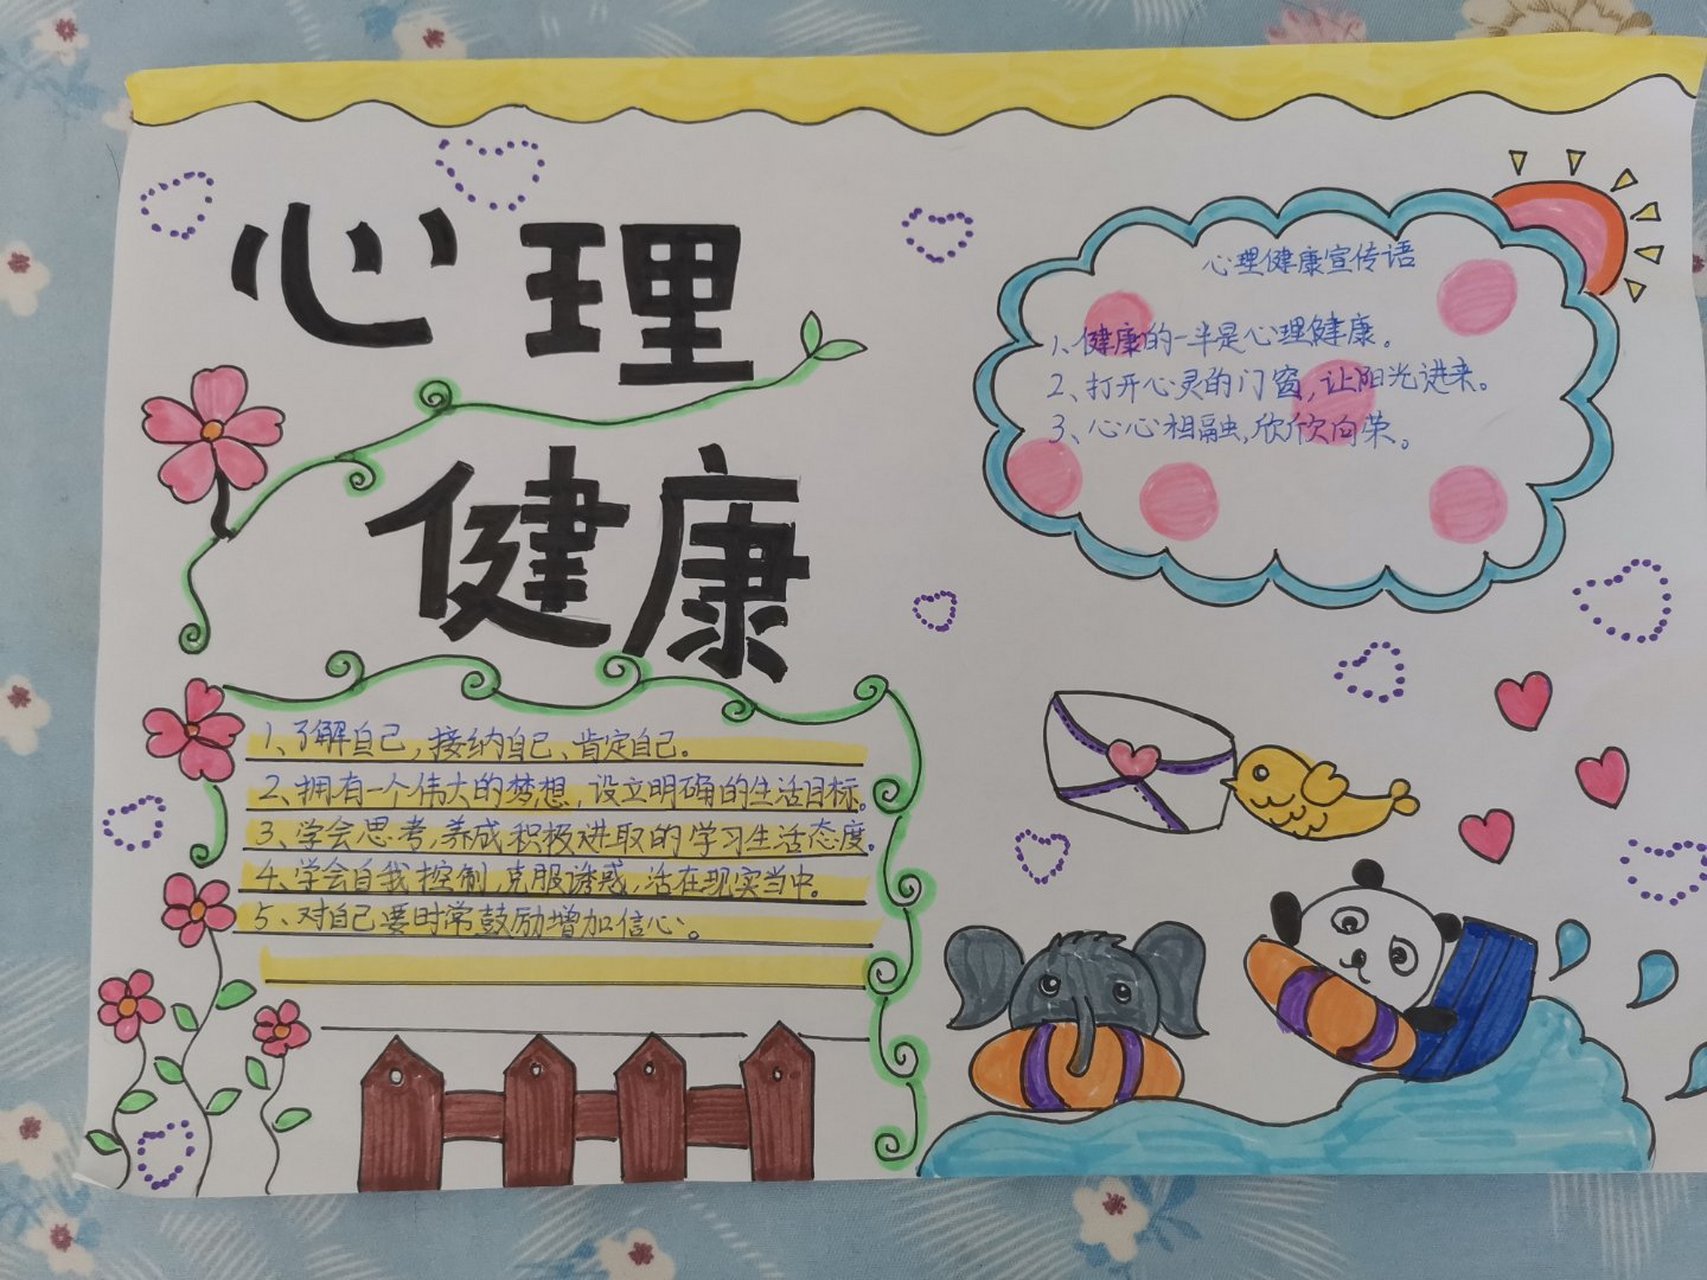 心理
健康
1、了解自己,接纳自己、肯定自己。
2、拥有一个伟大的梦想,设立明确的生活目标。
3、学会思考,养成积极进取的学习生活态度。
4、学会自我控制,克服诱惑,活在现实当中。
5、对自己要时常鼓励增加信心。
心理健康宣传语
1、健康的一半是心理健康。
2、打开心灵的门窗,让阳光进来。
3、心心相融,欣欣向荣。